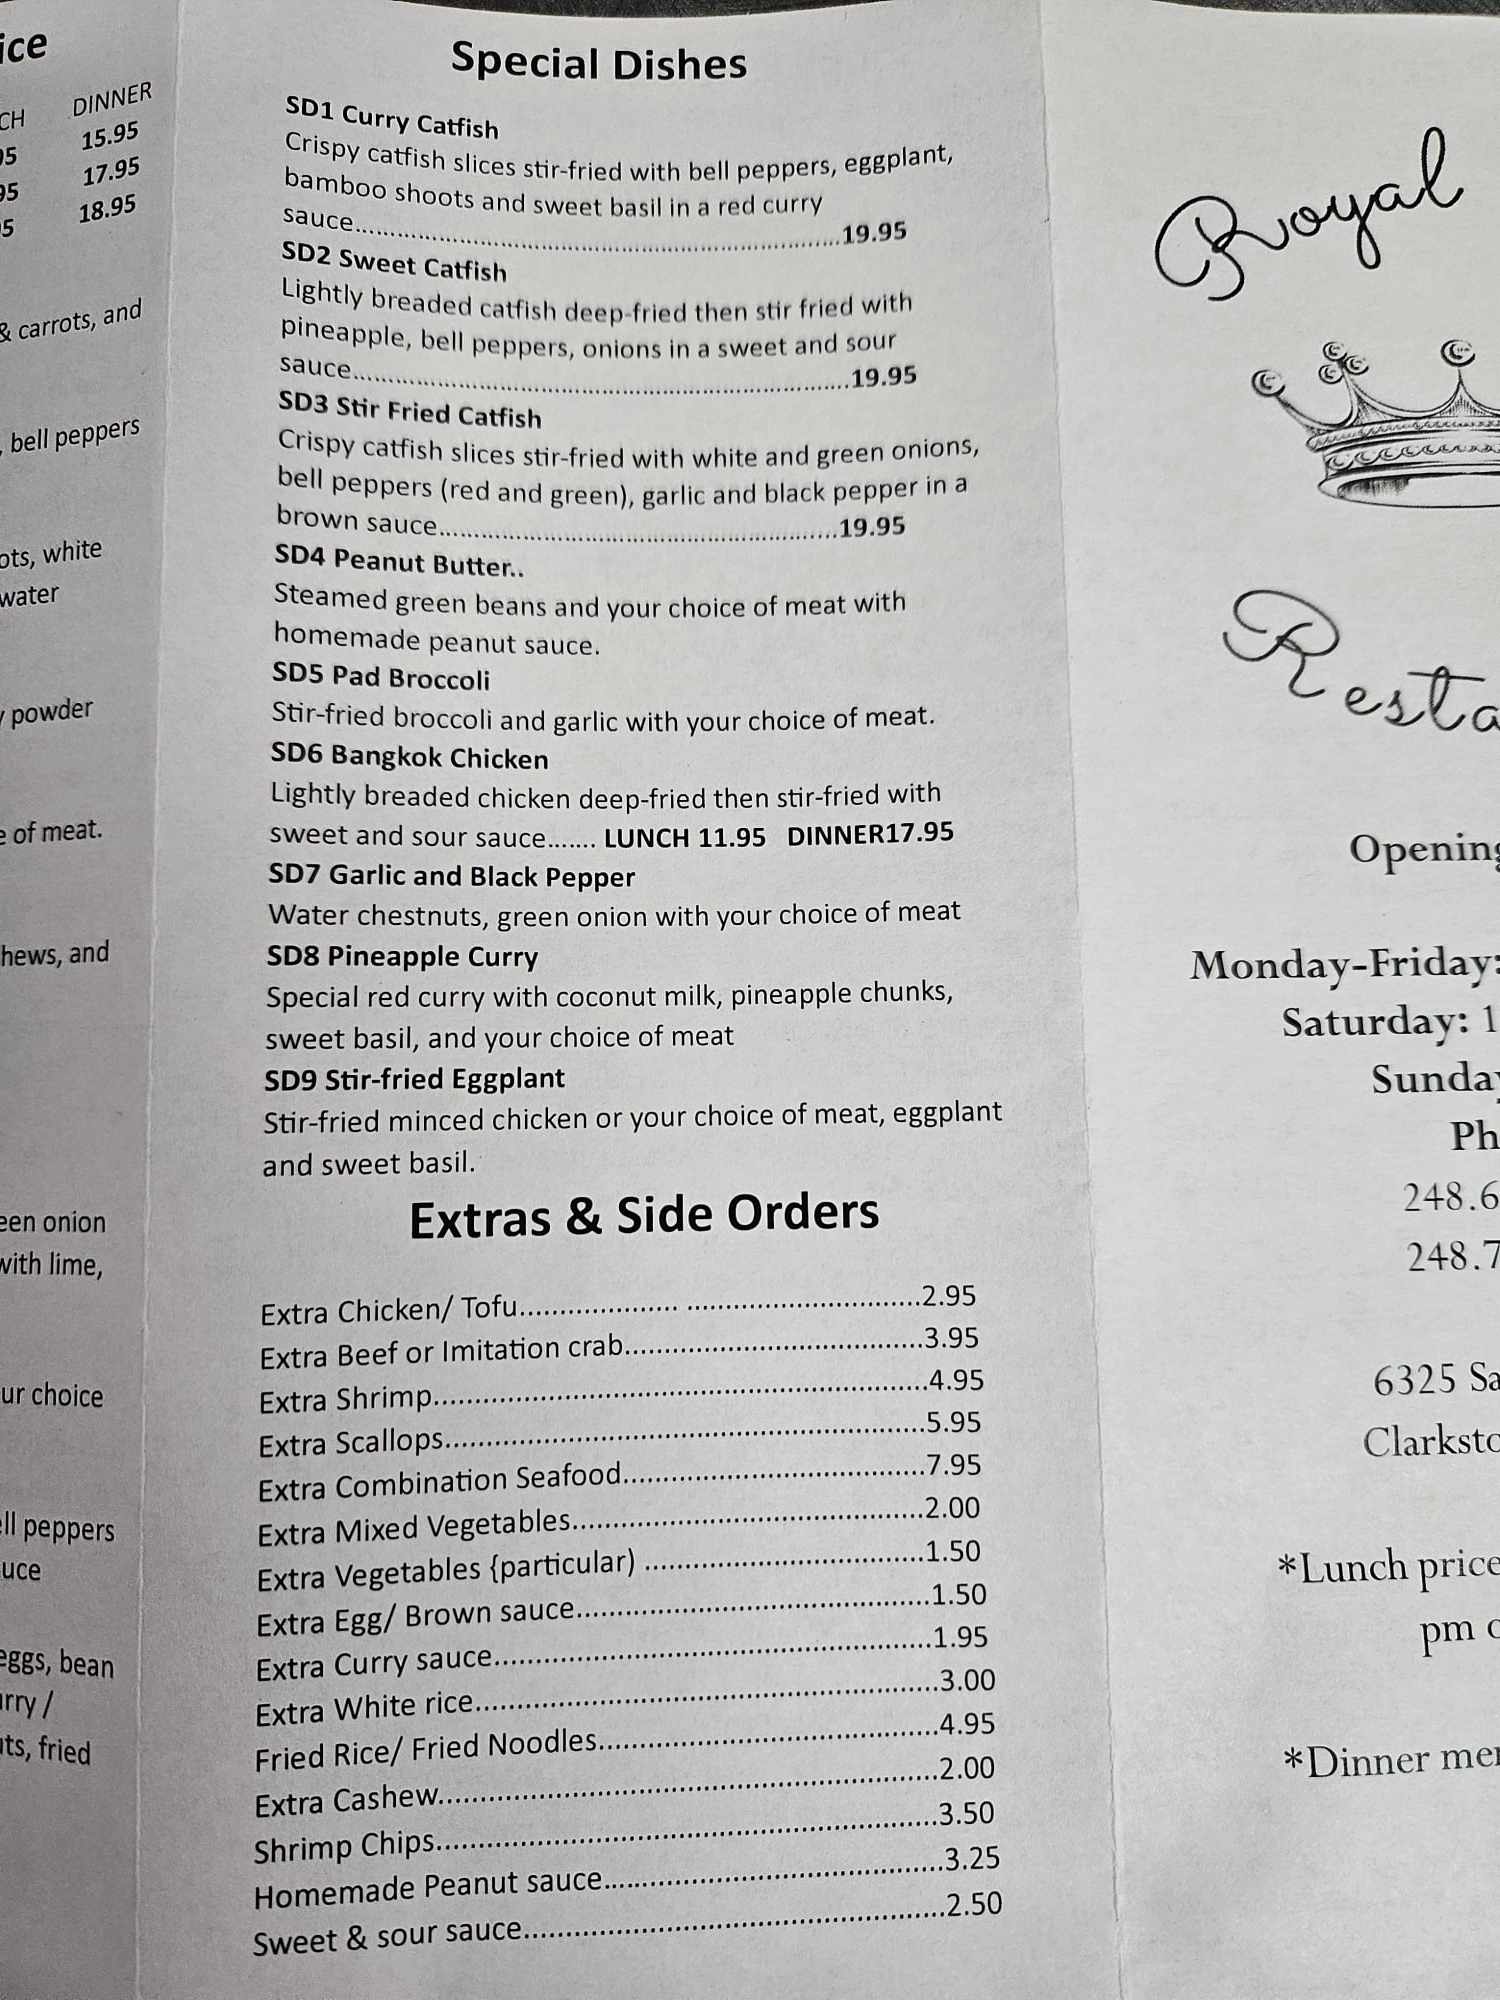 ice
CH DINNER
95 15.95
95 17.95
5 18.95
& carrots, and
, bell peppers
ots, white
water
powder
e of meat.
hews, and
een onion
with lime,
ur choice
ell peppers
uce
eggs, bean
urry /
uts, fried
Special Dishes
SD1 Curry Catfish
Crispy catfish slices stir-fried with bell peppers, eggplant,
bamboo shoots and sweet basil in a red curry
sauce......................................................................19.95
SD2 Sweet Catfish
Lightly breaded catfish deep-fried then stir fried with
pineapple, bell peppers, onions in a sweet and sour
sauce......................................................................19.95
SD3 Stir Fried Catfish
Crispy catfish slices stir-fried with white and green onions,
bell peppers (red and green), garlic and black pepper in a
brown sauce.........................................................19.95
SD4 Peanut Butter..
Steamed green beans and your choice of meat with
homemade peanut sauce.
SD5 Pad Broccoli
Stir-fried broccoli and garlic with your choice of meat.
SD6 Bangkok Chicken
Lightly breaded chicken deep-fried then stir-fried with
sweet and sour sauce....... LUNCH 11.95 DINNER17.95
SD7 Garlic and Black Pepper
Water chestnuts, green onion with your choice of meat
SD8 Pineapple Curry
Special red curry with coconut milk, pineapple chunks,
sweet basil, and your choice of meat
SD9 Stir-fried Eggplant
Stir-fried minced chicken or your choice of meat, eggplant
and sweet basil.
Extras & Side Orders
Extra Chicken/ Tofu.................... ..............................2.95
Extra Beef or Imitation crab......................................3.95
Extra Shrimp...............................................................4.95
Extra Scallops.............................................................5.95
Extra Combination Seafood.......................................7.95
Extra Mixed Vegetables.............................................2.00
Extra Vegetables {particular) ....................................1.50
Extra Egg/ Brown sauce.............................................1.50
Extra Curry sauce.......................................................1.95
Extra White rice..........................................................3.00
Fried Rice/ Fried Noodles...........................................4.95
Extra Cashew...............................................................2.00
Shrimp Chips...............................................................3.50
Homemade Peanut sauce...........................................3.25
Sweet & sour sauce.....................................................2.50
Royal
Resta
Opening
Monday-Friday:
Saturday: 1
Sunday
Ph
248.6
248.7
6325 Sa
Clarksto
*Lunch price
pm o
*Dinner men